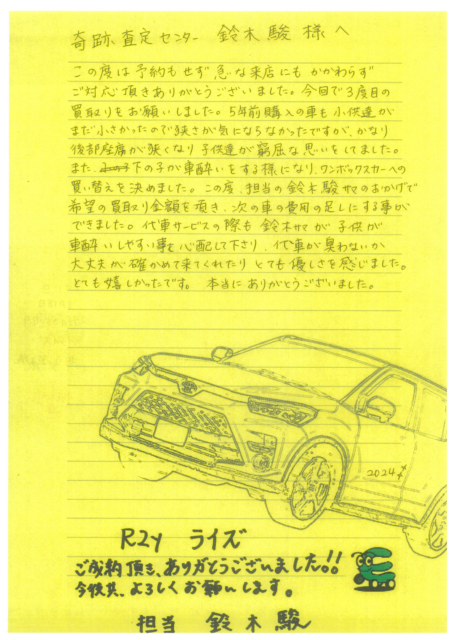 奇跡査定センター 鈴木駿様へ
この度は予約もせず急な来店にもかかわらず
ご対応頂きありがとうございました。今回で3度目の
買取りをお願いしました。5年前購入の車も小供達が
まだ小さかったので狭さが気にならなかったですが、かなり
後部座席が狭くなり子供達が窮屈な思いをしてました。
また、下の子が車酔いをする様になり、ワンボックスカーへの
買い替えを決めました。この度、担当の鈴木駿サマのおかげで
希望の買取り金額を頂き、次の車の費用の足しにする事が
できました。代車サービスの際も鈴木サマが子供が
車酔いしやすい事を心配して下さり、代車が臭わないか
大丈夫か確かめて来てくれたりとても優しさを感じました。
とても嬉しかったです。本当にありがとうございました。
2024
R2y ライズ
ご成約頂き、ありがとうございました!!
今後共、よろしくお願いします。
担当 鈴木駿